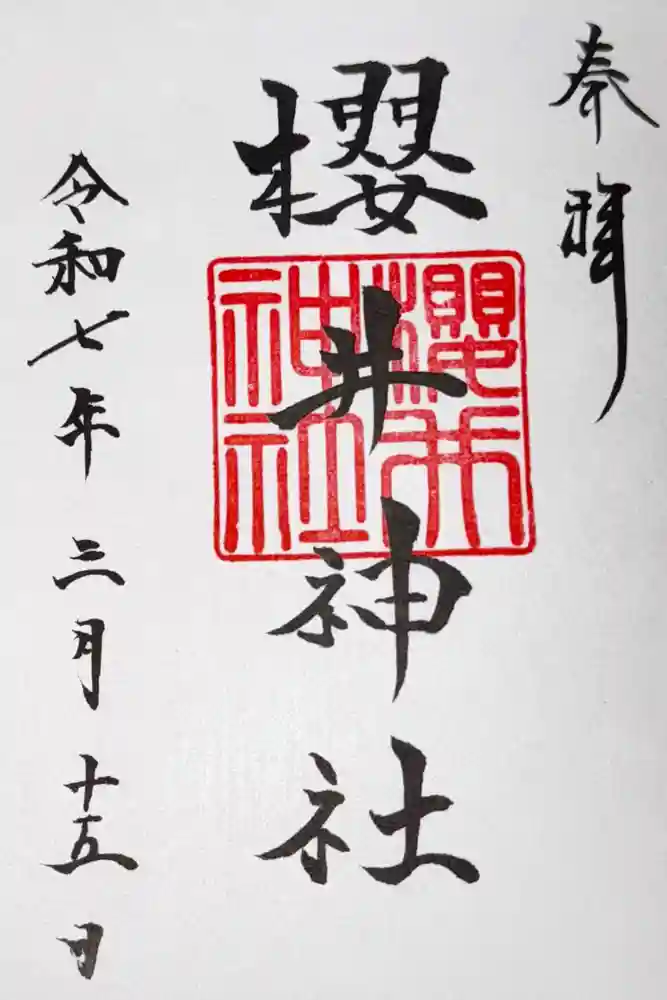 奉拝
櫻井神社
櫻井神社
令和七年 三月 十五日